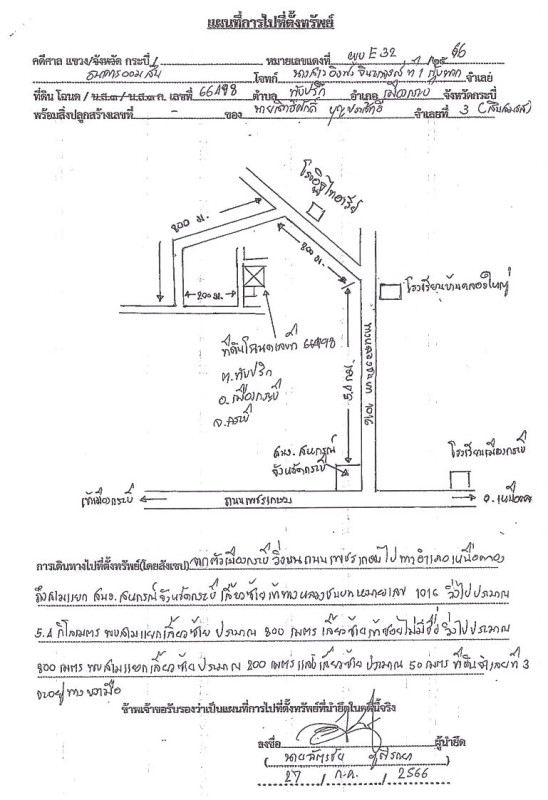 แผนที่การไปที่ตั้งทรัพย์
คดีศาล แขวง/จังหวัด กระบี่ / หมายเลขแดงที่ ผบ E 32 / 25 66
ธนาคารออมสิน โจทก์ ที่ 1 กับพวก จำเลย
ที่ดิน โฉนด / น.ส.๓ / น.ส.๓ ก. เลขที่ 66498 ตำบล ทับปริก อำเภอ เมืองกระบี่ จังหวัดกระบี่
พร้อมสิ่งปลูกสร้างเลขที่ - ของ จำเลยที่ 3
800 ม.
800 ม.
200 ม.
โรงเรียนบ้านคลองใหญ่
ทางหลวงชนบท 1016
ที่ดินโฉนดเลขที่ 66498
ต.ทับปริก
อ.เมืองกระบี่
จ.กระบี่
สนง. สหกรณ์
จังหวัดกระบี่
โรงเรียนเมืองกระบี่
เข้าเมืองกระบี่
ถนนเพชรเกษม
อ.เหนือคลอง
การเดินทางไปที่ตั้งทรัพย์(โดยสังเขป) จากตัวเมืองกระบี่ วิ่งบนถนนเพชรเกษมไปทางอำเภอเหนือคลอง
ถึงสามแยก สนง. สหกรณ์จังหวัดกระบี่ เลี้ยวซ้าย เข้าทางหลวงชนบทหมายเลข 1016 วิ่งไปประมาณ
5.4 กิโลเมตร พบสามแยกเลี้ยวซ้าย ประมาณ 800 เมตร เลี้ยวซ้ายเข้าซอยไม่มีชื่อ วิ่งไปประมาณ
800 เมตร พบสามแยกเลี้ยวซ้าย ประมาณ 200 เมตร แล้วเลี้ยวซ้าย ประมาณ 50 เมตร ที่ดินจำเลยที่ 3
จะอยู่ทางขวามือ
ข้าพเจ้าขอรับรองว่าเป็นแผนที่การไปที่ตั้งทรัพย์ที่นำยึดในคดีนี้จริง
ลงชื่อ ผู้นำยึด
27 / ก.ค. / 2566